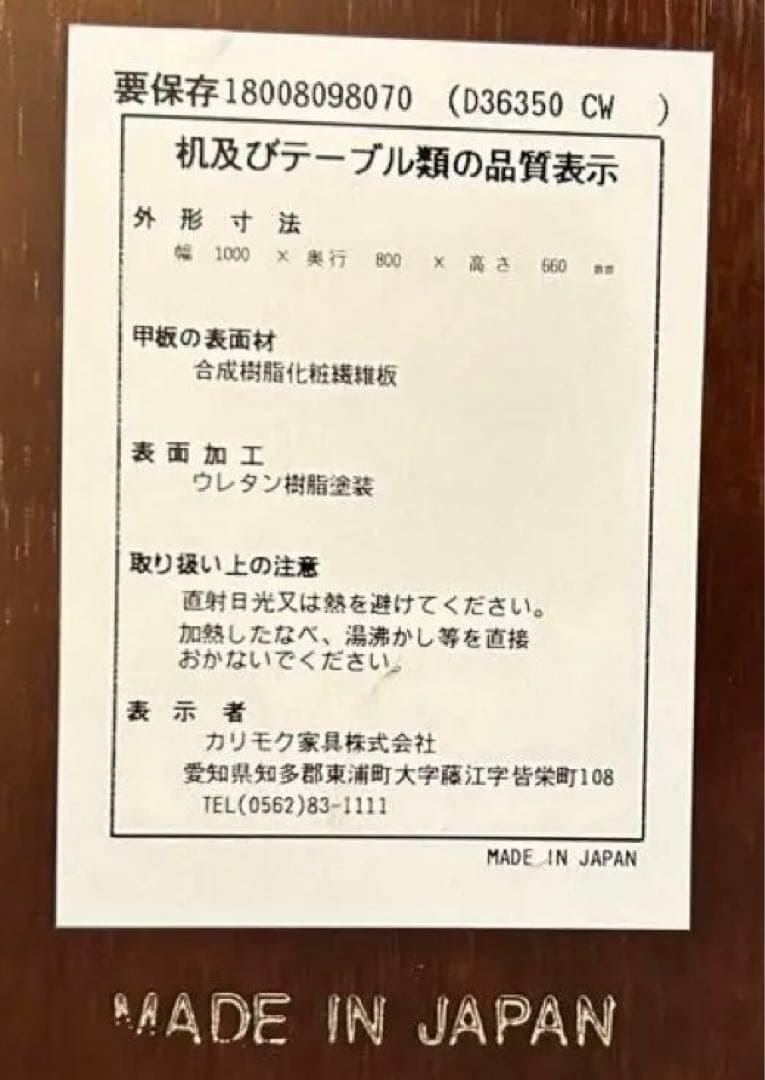 要保存18008098070 (D36350 CW )
机及びテーブル類の品質表示
外形寸法
幅 1000 × 奥行 800 × 高さ 660 mm
甲板の表面材
合成樹脂化粧繊維板
表面加工
ウレタン樹脂塗装
取り扱い上の注意
直射日光又は熱を避けてください。
加熱したなべ、湯沸かし等を直接
おかないでください。
表示者
カリモク家具株式会社
愛知県知多郡東浦町大字藤江字皆栄町108
TEL(0562)83-1111
MADE IN JAPAN
MADE IN JAPAN